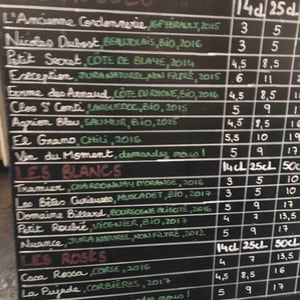 14cl 25cl
L'Ancienne Cordonnerie, IGP HÉRAULT, 2015 3 5
Nicolas Dubost, BEAUJOLAIS, BIO, 2016 3 5
Petit Secret, CÔTE DE BLAYE, 2014 4,5 8,5
Exception, JURA NATUREL, NON FILTRÉ, 2015 6 11
Ferme des Arnaud, CÔTE DU RHÔNE, BIO, 2016 4,5 8,5
Clos St Conti, LANGUEDOC, BIO, 2015 5 9
Agrion Bleu, SAUMUR, BIO, 2015 4,5 8,5 16
El Grano, CHILI, 2016 5,5 10 19
Vin du Moment, demandez nous! 5 9 17
LES BLANCS 14cl 25cl 50cl
Tramier, CHARDONNAY D'ORANGE, 2016 3 5 10
Les Bêtes Curieuses, MUSCADET, BIO, 2017 3 5
Domaine Billard, BOURGOGNE ALIGOTÉ, 2016 5 9 17
Petit Roubié, VIOGNIER, BIO, 2017 4 7 13,5
Nuance, JURA NATUREL NON FILTRÉ, 2012 5 9 17
LES ROSÉS 14cl 25cl 50cl
Casa Rossa, CORSE, 2016 4 7 13,5
La Pujade, CORBIÈRES, 2017 4,5 8,5 16
5 9 17